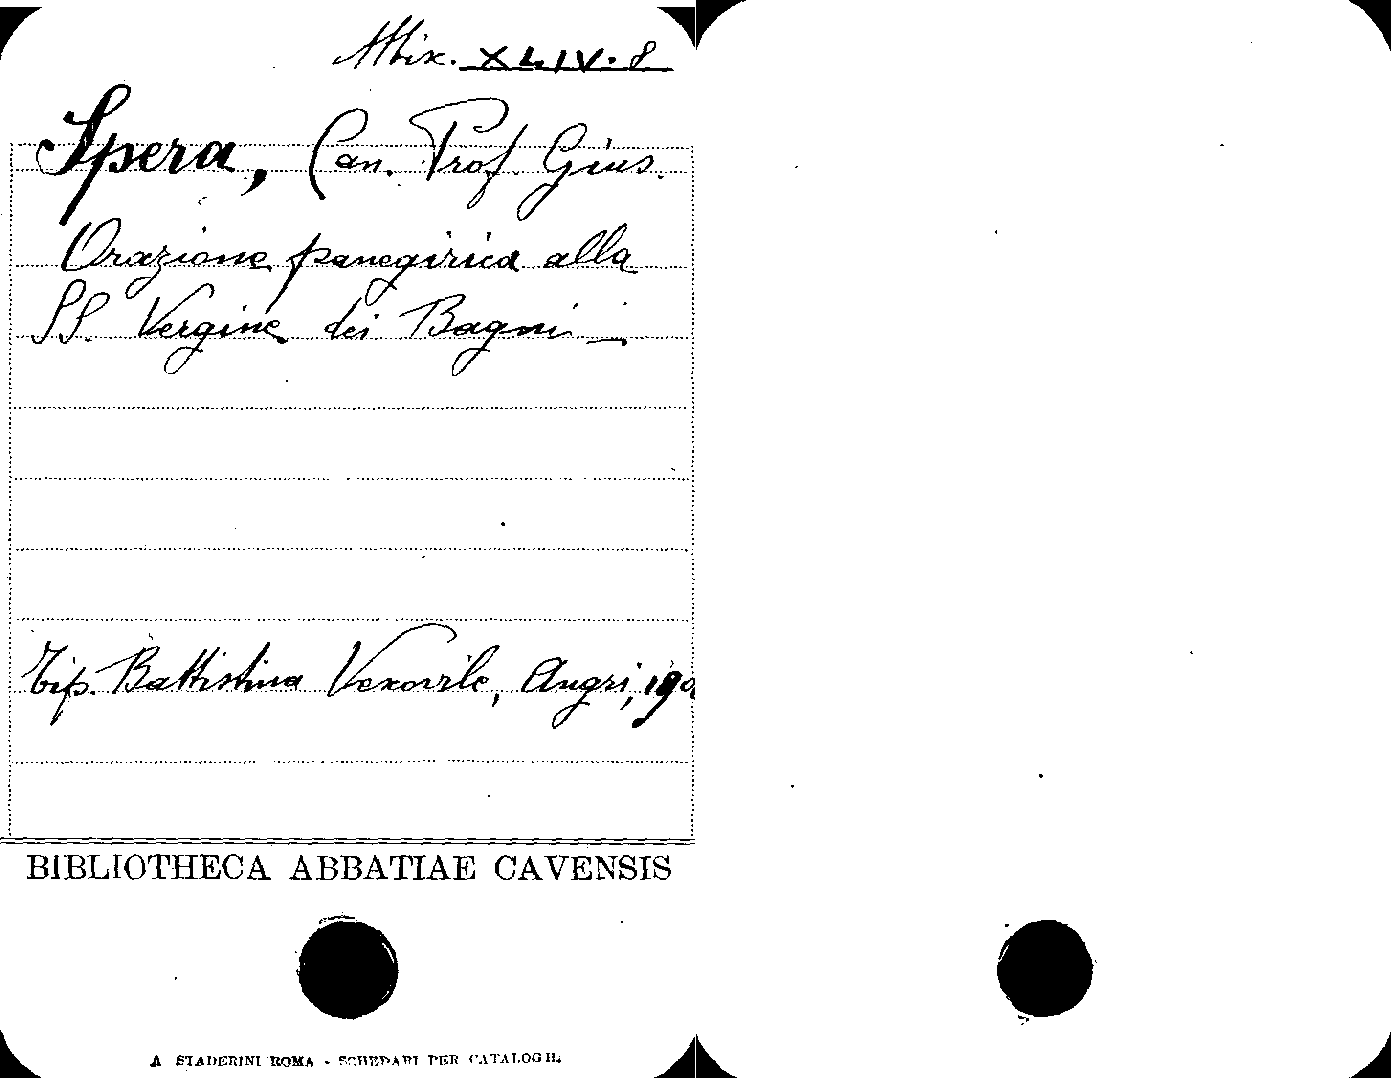 Misc. XLIV. 8
Spera, Can. Prof. Gius.
Orazione panegirica alla
SS. Vergine dei Bagni
Tip. Battistina Vexovile, Angri, 190
BIBLIOTHECA ABBATIAE CAVENSIS
A STADERINI ROMA - SCHEDARI PER CATALOGHI.